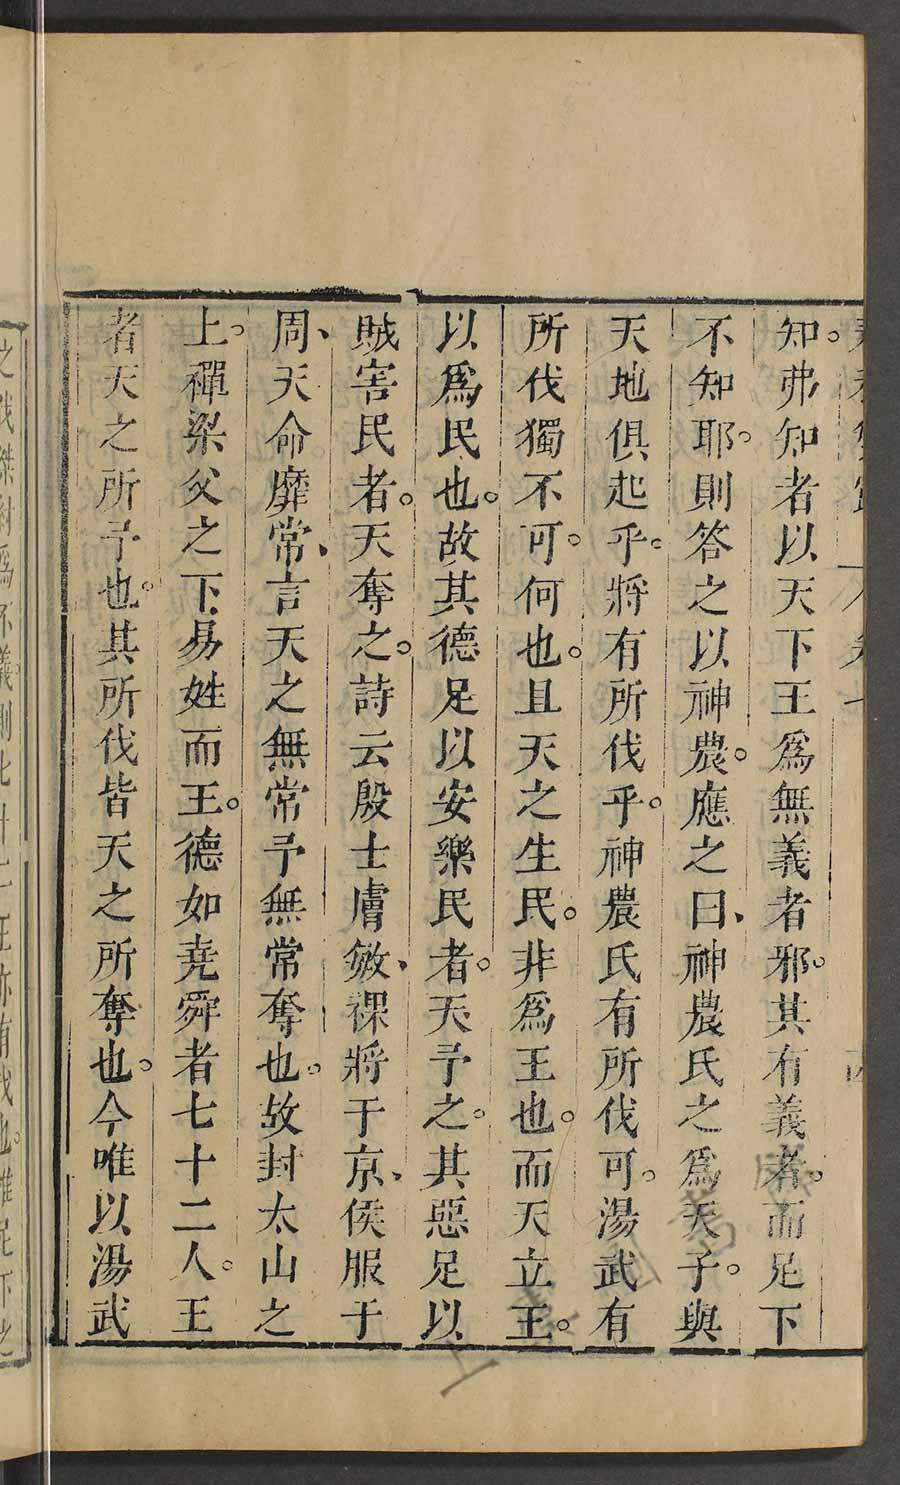 知。弗知者以天下王爲無義者邪。其有義者。而足下
不知耶。則答之以神農。應之曰、神農氏之爲天子。與
天地俱起乎。將有所伐乎。神農氏有所伐可。湯武有
所伐獨不可。何也。且天之生民。非爲王也。而天立王。
以爲民也。故其德足以安樂民者。天予之。其惡足以
賊害民者。天奪之。詩云殷士膚敏、祼將于京、侯服于
周、天命靡常、言天之無常予無常奪也。故封太山之
上。禪梁父之下、易姓而王。德如堯舜者七十二人。王
者天之所予也。其所伐皆天之所奪也。今唯以湯武